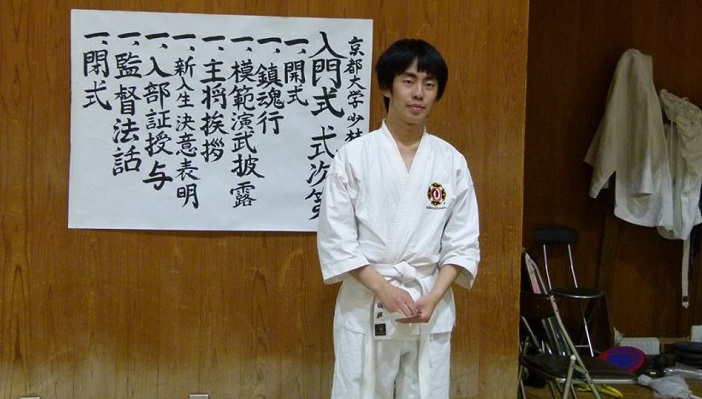 京都大学 少林
入門式 式次第
一、開式
一、鎮魂行
一、模範演武披露
一、主将挨拶
一、新入生決意表明
一、入部証授与
一、監督法話
一、閉式